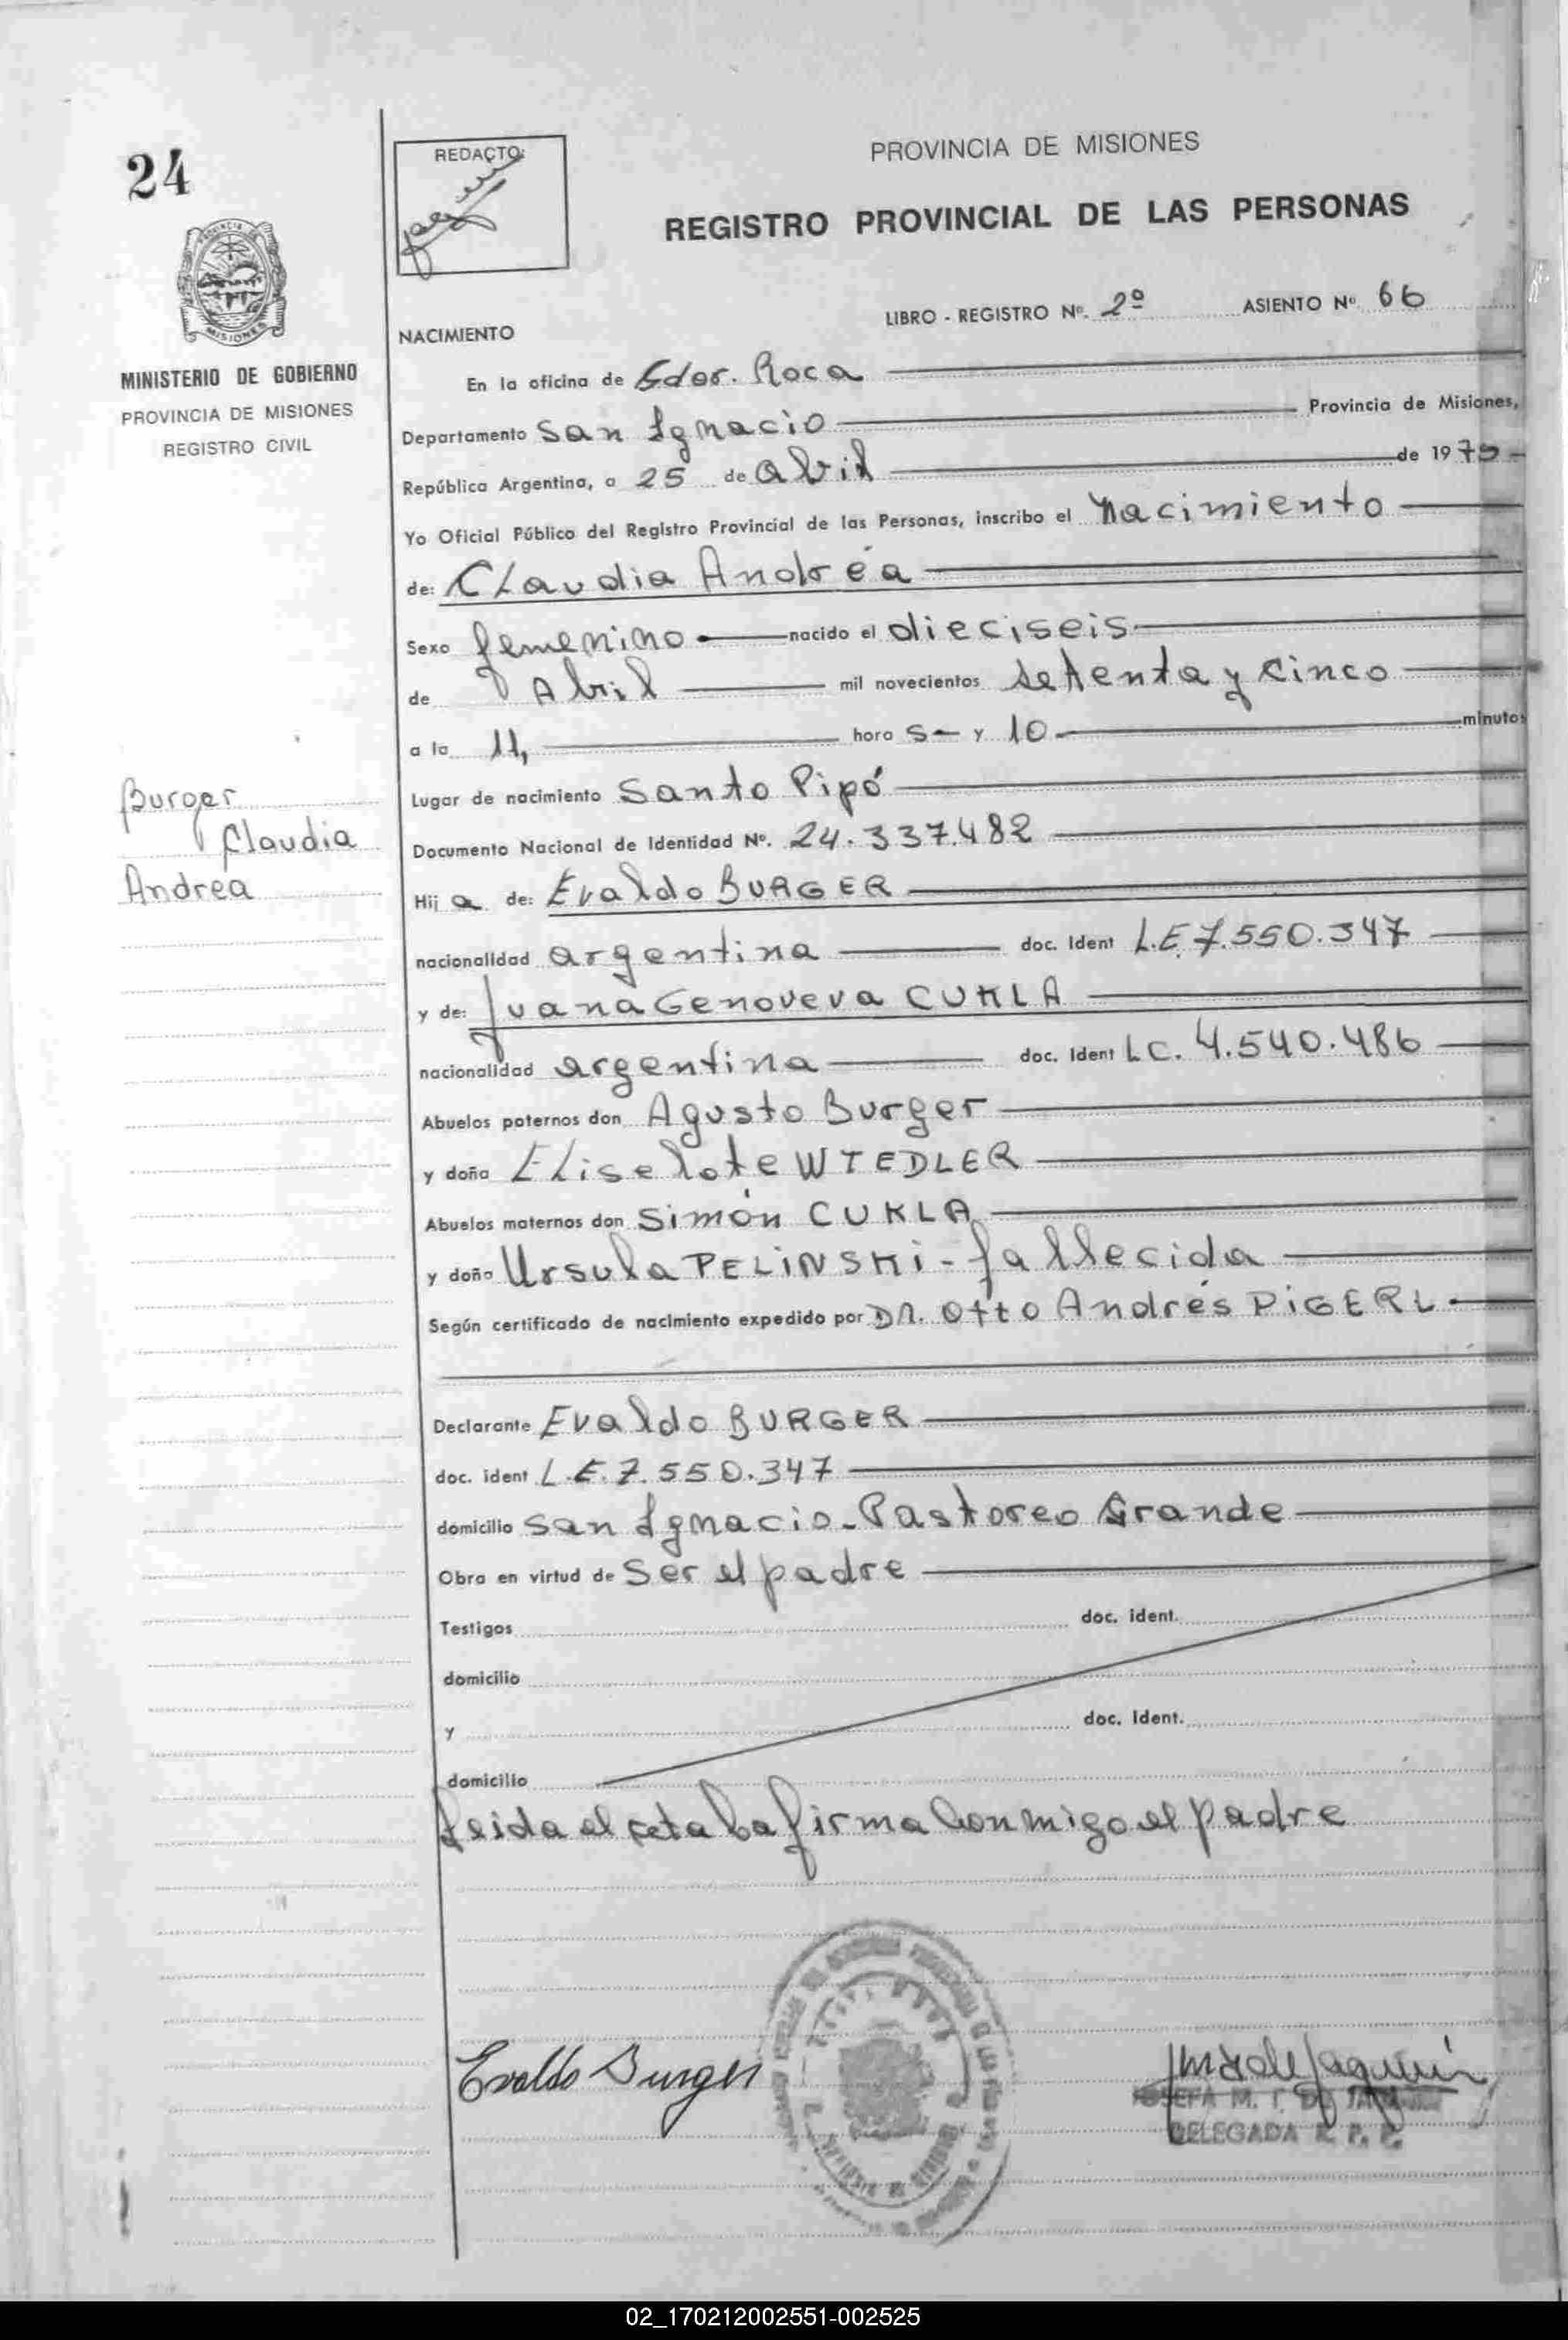 24
REDACTO:
PROVINCIA DE MISIONES
REGISTRO PROVINCIAL DE LAS PERSONAS
LIBRO - REGISTRO Nº. 2º ASIENTO Nº 66
NACIMIENTO
MISIONES
MINISTERIO DE GOBIERNO
PROVINCIA DE MISIONES
REGISTRO CIVIL
En la oficina de Gdor. Roca
Departamento San Ignacio Provincia de Misiones,
República Argentina, a 25 de Abril de 1975
Yo Oficial Público del Registro Provincial de las Personas, inscribo el nacimiento
de: Claudia Andrea
Sexo femenino nacido el dieciseis
de Abril mil novecientos setenta y cinco
a la 11, hora s y 10 minutos
Burger
Claudia
Andrea
Lugar de nacimiento Santo Pipó
Documento Nacional de Identidad Nº. 24.337.482
Hij a de: Evaldo BURGER
nacionalidad argentina doc. Ident L.E 7.550.347
y de: Juana Genoveva CUKLA
nacionalidad argentina doc. Ident L C. 4.540.486
Abuelos paternos don Agusto Burger
y doña Eliselote WIEDLER
Abuelos maternos don Simón CUKLA
y doña Ursula PELINSKI - fallecida
Según certificado de nacimiento expedido por Dr. Otto Andrés PIGERL
Declarante Evaldo BURGER
doc. ident L.E. 7.550.347
domicilio San Ignacio - Pastoreo Grande
Obra en virtud de Ser el padre
Testigos doc. ident.
domicilio
y doc. Ident.
domicilio
Leida el acta la firma conmigo el padre
Evaldo Burger
JOSEFA M. T. DE
DELEGADA R. P. P.
02_170212002551-002525